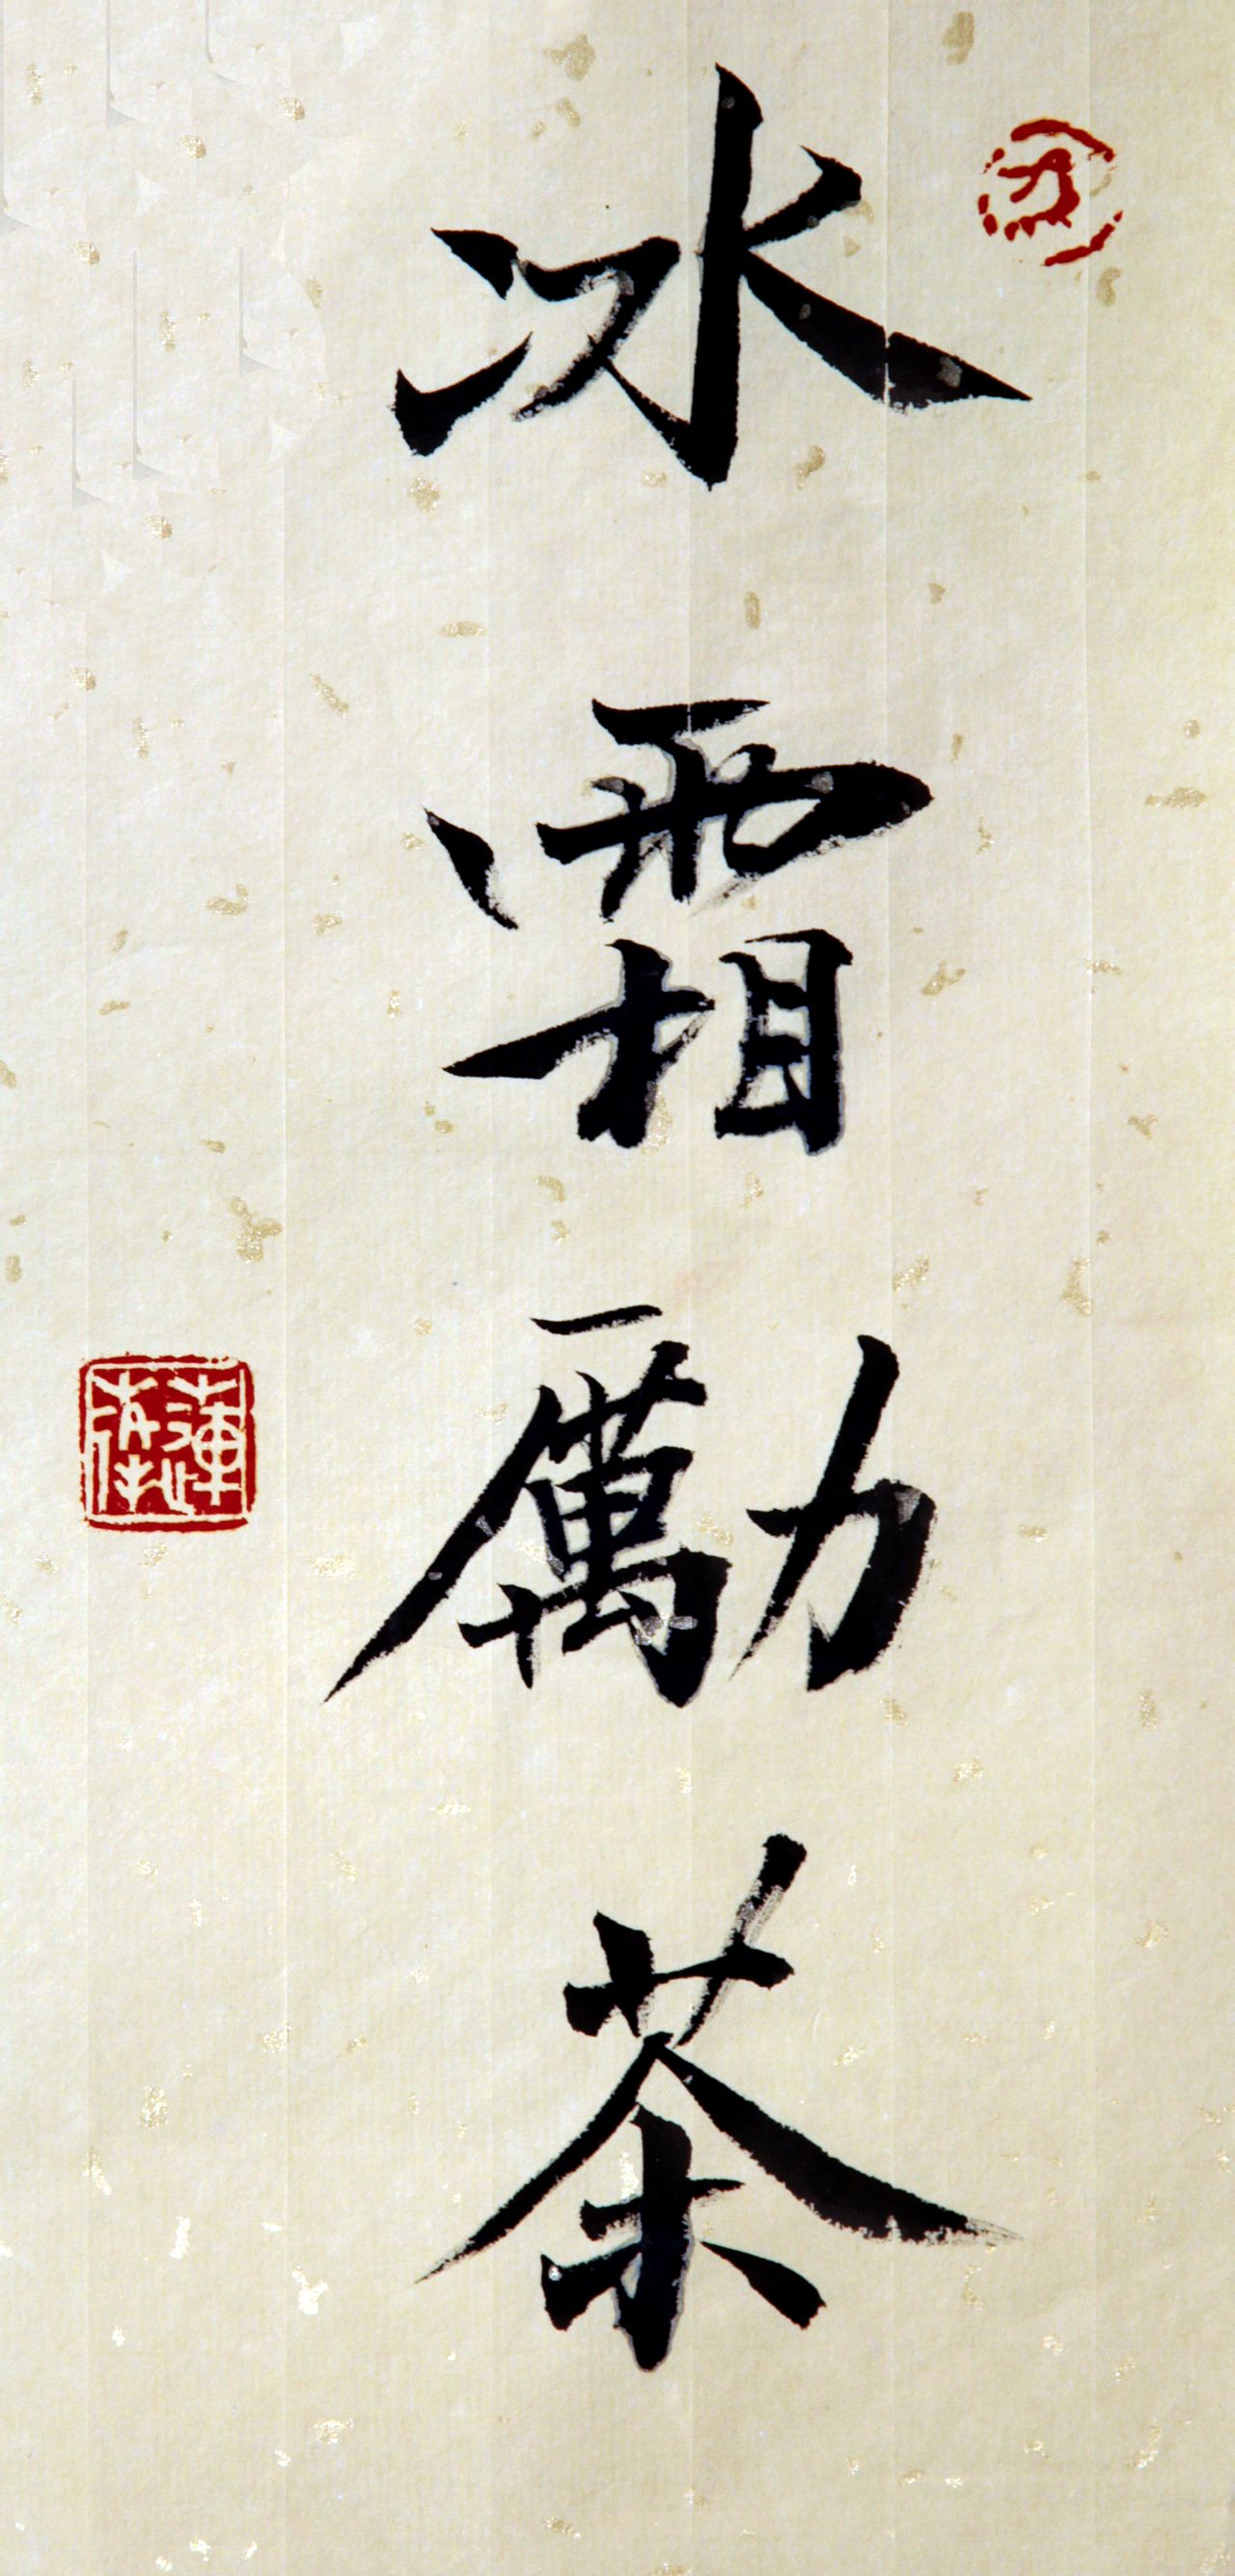 冰霜勵茶